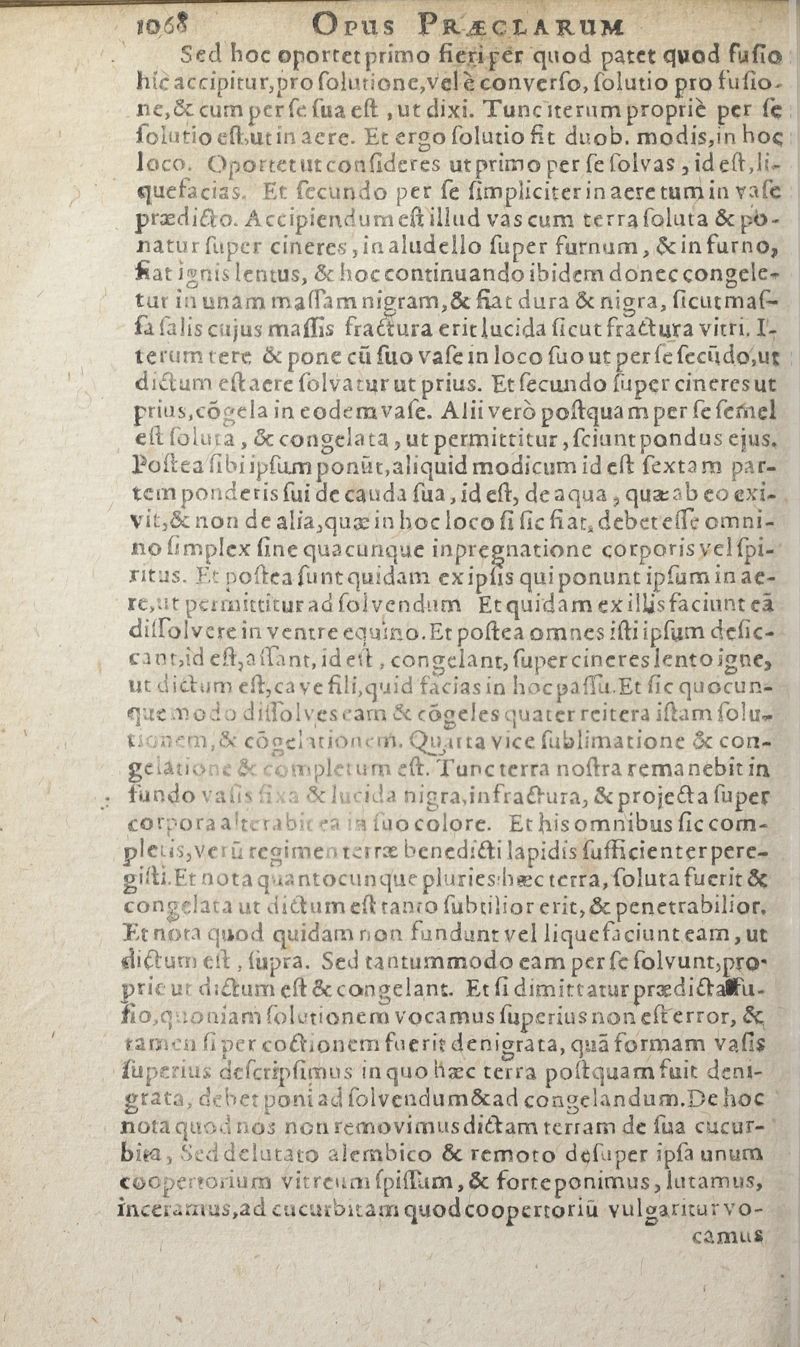 1068 OPUS PRÆCLARUM
Sed hoc oportet primo fieri per quod patet quod fuſio
hic accipitur, pro ſolutione, vel è converſo, ſolutio pro fuſio-
ne, & cum per ſe ſua eſt , ut dixi. Tunc iterum propriè per ſe
ſolutio eſt, ut in aere. Et ergo ſolutio fit duob. modis, in hoc
loco. Oportet ut conſideres ut primo per ſe ſolvas , id eſt, li-
quefacias. Et ſecundo per ſe ſimpliciter in aere tum in vaſe
prædicto. Accipiendum eſt illud vas cum terra ſoluta & po-
natur ſuper cineres , in aludello ſuper furnum , & in furno,
fiat ignis lentus, & hoc continuando ibidem donec congele-
tur in unam maſſam nigram, & fiat dura & nigra, ſicut maſ-
ſa ſalis cujus maſſis fractura erit lucida ſicut fractura vitri. I-
terum tere & pone cũ ſuo vaſe in loco ſuo ut per ſe ſecũdo, ut
dictum eſt aere ſolvatur ut prius. Et ſecundo ſuper cineres ut
prius, cõgela in eodem vaſe. Alii verò poſtquam per ſe ſemel
eſt ſoluta , & congelata , ut permittitur , ſciunt pondus ejus.
Poſtea ſibi ipſum ponũt, aliquid modicum id eſt ſextam par-
tem ponderis ſui de cauda ſua , id eſt, de aqua , quæ ab eo exi-
vit, & non de alia, quæ in hoc loco ſi ſic fiat, debet eſſe omni-
no ſimplex ſine quacunque inpregnatione corporis vel ſpi-
ritus. Et poſtea ſunt quidam ex ipſis qui ponunt ipſum in ae-
re, ut permittitur ad ſolvendum Et quidam ex illis faciunt eã
diſſolvere in ventre equino. Et poſtea omnes iſti ipſum deſic-
cant, id eſt, aſſant, id eſt , congelant, ſuper cineres lento igne,
ut dictum eſt, cave fili, quid facias in hoc paſſu. Et ſic quocun-
que modo diſſolves eam & cõgeles quater reitera iſtam ſolu-
tionem, & cõgelationem. Quarta vice ſublimatione & con-
gelatione & completum eſt. Tunc terra noſtra remanebit in
fundo vaſis fixa & lucida nigra, in fractura, & projecta ſuper
corpora alterabit ea in ſuo colore. Et his omnibus ſic com-
pletis, verũ regimen terræ benedicti lapidis ſufficienter pere-
giſti. Et nota quantocunque pluries hæc terra, ſoluta fuerit &
congelata ut dictum eſt tanto ſubtilior erit, & penetrabilior.
Et nota quod quidam non fundunt vel liquefaciunt eam , ut
dictum eſt , ſupra. Sed tantummodo eam per ſe ſolvunt, pro-
prie ut dictum eſt & congelant. Et ſi dimittatur prædicta fu-
ſio, quoniam ſolutionem vocamus ſuperius non eſt error, &
tamen ſi per coctionem fuerit denigrata, quã formam vaſis
ſuperius deſcripſimus in quo hæc terra poſtquam fuit deni-
grata, debet poni ad ſolvendum & ad congelandum. De hoc
nota quod nos non removimus dictam terram de ſua cucur-
bita, Sed delutato alembico & remoto deſuper ipſa unum
coopertorium vitreum ſpiſſum, & forte ponimus, lutamus,
inceramus, ad cucurbitam quod coopertoriũ vulgaritur vo-
camus